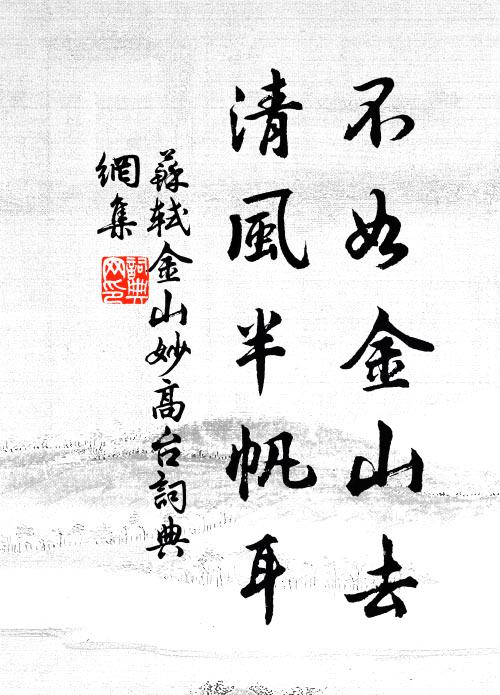 不如金山去
清風半帆耳
蘇軾金山妙高台詞典
網集
詞典
网印